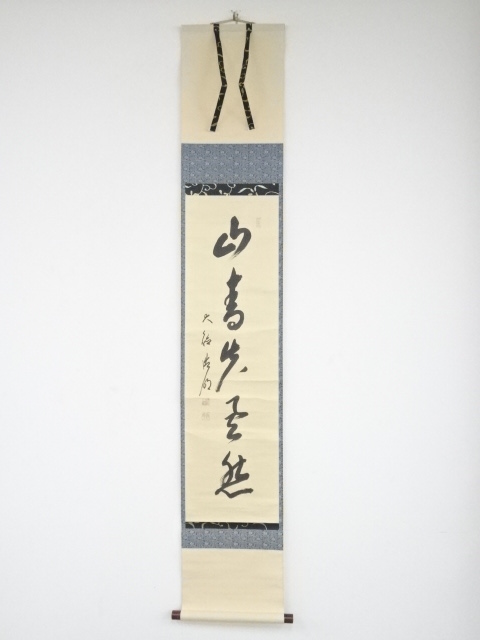 山青花欲然
大徳